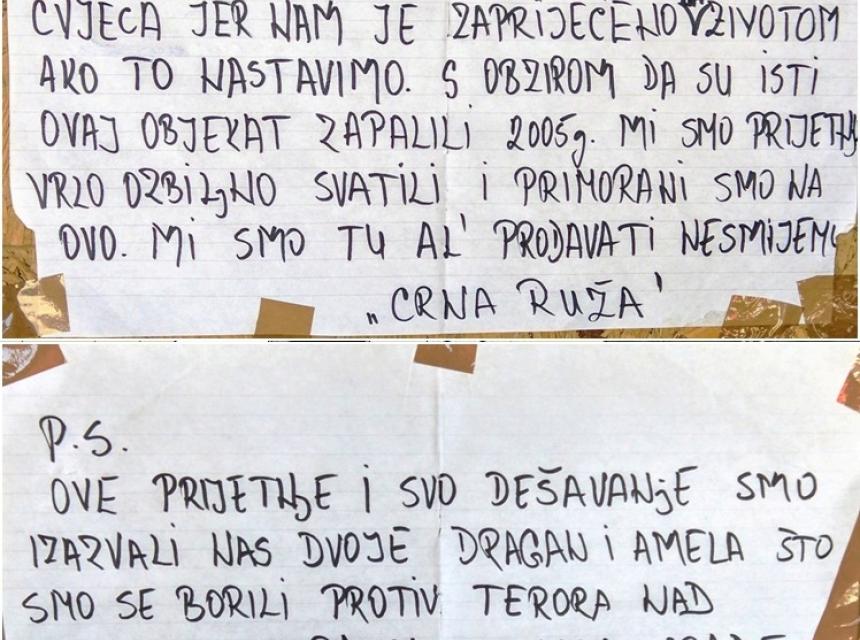 CVJEĆA JER NAM JE ZAPRIJEĆENO ŽIVOTOM
AKO TO NASTAVIMO. S OBZIROM DA SU ISTI
OVAJ OBJEKAT ZAPALILI 2005g. MI SMO PRIJETNJ
VRLO OZBILjNO SVATILI I PRIMORANI SMO NA
OVO. MI SMO TU AL' PRODAVATI NESMIJEMO
„CRNA RUŽA'
P.S.
OVE PRIJETNjE I SVO DEŠAVANjE SMO
IZAZVALI NAS DVOJE DRAGAN I AMELA ŠTO
SMO SE BORILI PROTIV TERORA NAD